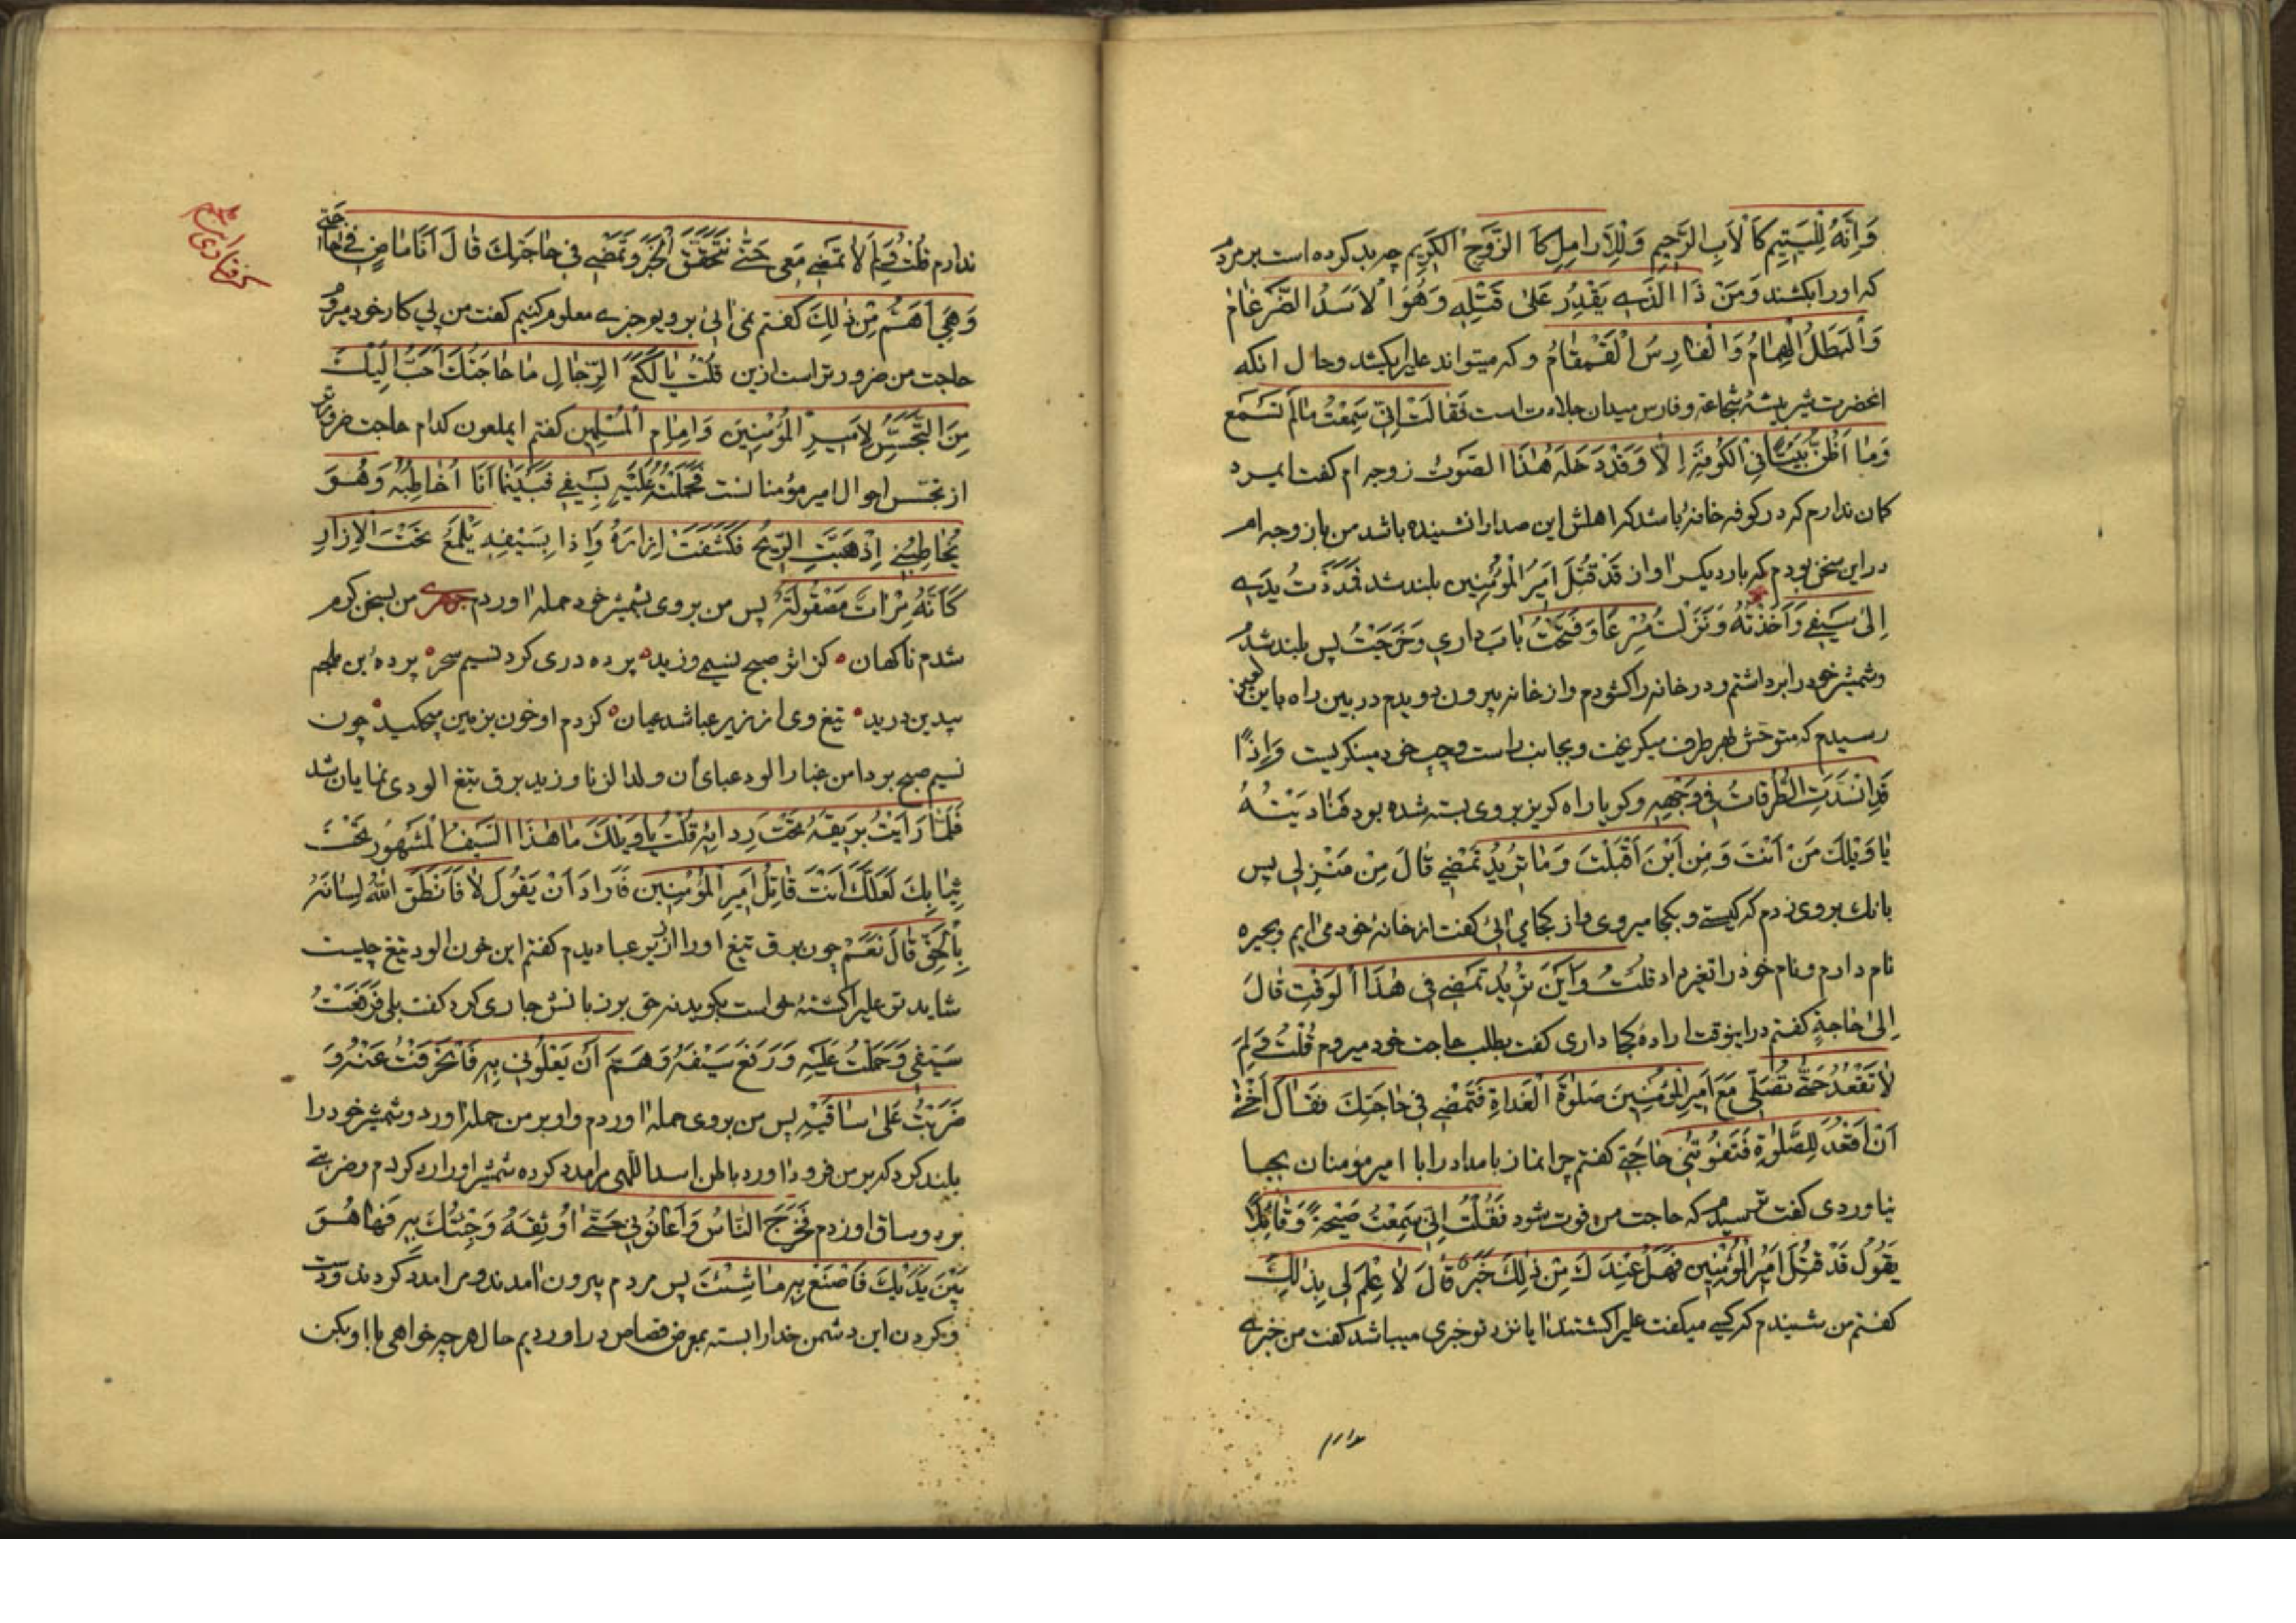 وَاِنَّهُ لِلْيَتِيمِ كَالْاَبِ الرَّحِيمِ وَلِلْاَرَامِلِ كَاَ الزَّوْجِ الْكَرِيمِ چه بد كرده است بر مردم
كه اورا بكشند وَمَنْ ذَا الَّذِي يَقْدِرُ عَلٰى قَتْلِهِ وَهُوَ الْاَسَدُ الضَّرْغَامُ
وَالْبَطَلُ الْهُمَامُ وَالْفَارِسُ الْقَمْقَامُ و كه ميتواند على را بكشد و حال انكه
انحضرت شير بيشهٔ شجاعة و فارس ميدان جلادت است فَقَالَتْ اِنِّي سَمِعْتُ مَالَمْ تَسْمَع
وَمَا اَظُنُّ بَيْتًا فِي الْكُوفَةِ اِلَّا وَقَدْ دَخَلَهُ هٰذَا الصَّوْتُ زوجه ام كفت ايمرد
كمان ندارم كه در كوفه خانهٔ باشد كه اهلش اين صدا را نشنيده باشد من با زوجه ام
در اين سخن بودم كه بار ديكر اواز قَدْ قُتِلَ اَمِيرُ الْمُؤْمِنِين بلند شد فَمَدَدْتُ يَدِي
اِلىٰ سَيْفِي وَاَخَذْتُهُ وَنَزَلْتُ مُسْرِعًا وَفَتَحْتُ بَابَ دَارِي وَخَرَجْتُ پس بلند شدم
و شمشير خود را برداشتم و در خانه را كشودم و از خانه بيرون دويدم در بين راه باين لعين
رسيدم كه متوحش بهر طرف ميكريخت و بجانب راست و چپ خود مينكريست وَاِذًا
قَدِ انْسَدَّتِ الطُّرُقَاتُ فِي وَجْهِهِ و كويا راه كريز بروى بسته شده بود فَنَادَيْتُهُ
يَا وَيْلَكَ مَنْ اَنْتَ وَمِنْ اَيْنَ اَقْبَلْتَ وَمَا تُرِيدُ تَمْضِي قَالَ مِنْ مَنْزِلِي پس
بانك بروى زدم كه كيستى و بكجا ميروى و از كجا مى ائى كفت از خانهٔ خود مى ايم و بحيره
نام دارم و نام خود را تغير داد قُلْتُ وَاَيْنَ تُرِيدُ تَمْضِي فِي هٰذَا الْوَقْتِ قَالَ
اِلىٰ حَاجَةٍ كفتم در اينوقت ارادهٔ كجا دارى كفت بطلب حاجت خود ميروم قُلْتُ وَلِمَ
لَا تَقْعُدُ حَتّٰى تُصَلِّي مَعَ اَمِيرِ الْمُؤْمِنِينَ صَلٰوةَ الْغَدَاةِ فَتَمْضِي فِي حَاجَتِكَ فَقَالَ اَخْشٰى
اَنْ اَقْعُدَ لِلصَّلٰوةِ فَتَفُوتُنِي حَاجَتِي كفتم چرا نماز بامداد را با امير مؤمنان بجا
نياوردى كفت ترسيدم كه حاجت من فوت شود فَقُلْتُ اِنِّي سَمِعْتُ صَيْحَةً وَقَائِلًا
يَقُولُ قَدْ قُتِلَ اَمِيرُ الْمُؤْمِنِين فَهَلْ عِنْدَكَ مِنْ ذٰلِكَ خَبَرٌ قَالَ لَا عِلْمَ لِي بِذٰلِكَ
كفتم من شنيدم كه كسى ميكفت على را كشتند ايا نزد تو خبرى ميباشد كفت من خبرى
ندارم
ندارم قُلْتُ وَلِمَ لَا تَمْضِي مَعِي حَتّٰى نَتَحَقَّقَ الْخَبَرَ وَتَمْضِي فِي حَاجَتِكَ قَالَ اَنَا مَاضٍ فِي حَاجَتِي
وَهِيَ اَهَمُّ مِنْ ذٰلِكَ كفتم نمى ائى برويم خبرى معلوم كنيم كفت من پى كار خود ميروم
حاجت من ضرور تر است ازين قُلْتُ يَا لُكَعَ الرِّجَالِ مَا حَاجَتُكَ اَحَبُّ اِلَيْكَ
مِنَ التَّجَسُّسِ لِاَمِيرِ الْمُؤْمِنِينَ وَاِمَامِ الْمُسْلِمِين كفتم ايملعون كدام حاجت ضرورتر
از تجسس احوال امير مؤمنانست فَحَمَلْتُ عَلَيْهِ بِسَيْفِي فَبَيْنَمَا اَنَا اُخَاطِبُهُ وَهُوَ
يُخَاطِبُنِي اِذْ هَبَّتِ الرِّيحُ فَكَشَفَتْ اِزَارَهُ وَاِذَا بِسَيْفِهِ يَلْمَعُ تَحْتَ الْاِزَارِ
كَاَنَّهُ مِرْاٰتٌ مَصْقُولَةٌ پس من بروى بشمشير خود حمله اوردم من بسخن كرم
شدم ناكهان كز اثر صبح نسيمى وزيد پرده درى كرد نسيم سحر پردهٔ بن ملجم
بيدين دريد تيغ وى از زير عبا شد عيان كز دم او خون بزمين ميچكيد چون
نسيم صبح بر دامن غبار الود عباى ان ولد الزنا وزيد برق تيغ الودى نمايان شد
فَلَمَّا رَاَيْتُ بَرِيقَهُ تَحْتَ رِدَائِهِ قُلْتُ يَا وَيْلَكَ مَا هٰذَا السَّيْفُ الْمَشْهُورُ تَحْتَ
ثِيَابِكَ لَعَلَّكَ اَنْتَ قَاتِلُ اَمِيرِ الْمُؤْمِنِين فَاَرَادَ اَنْ يَقُولَ لَا فَاَنْطَقَ اللهُ لِسَانَهُ
بِالْحَقِّ قَالَ نَعَمْ چون برق تيغ اورا از زير عبا ديدم كفتم اين خون الود تيغ چيست
شايد تو على را كشتهٔ خواست بكويد نه حق بر زبانش جارى كرد كفت بلى فَرَفَعْتُ
سَيْفِي وَحَمَلْتُ عَلَيْهِ وَرَفَعَ سَيْفَهُ وَهَمَّ اَنْ يَعْلُوَنِي بِهِ فَانْحَرَفْتُ عَنْهُ وَ
ضَرَبْتُ عَلىٰ سَاقَيْهِ پس من بروى حمله اوردم و او بر من حمله اورد و شمشير خود را
بلند كرد كه بر من فرود اورد باطن اسد اللهى مرا مدد كرده شمشير اورا رد كردم و ضربتى
بر دو ساق او زدم فَخَرَجَ النَّاسُ وَاَعَانُونِي حَتّٰى اُوثِقَهُ وَجِئْتُكَ بِهِ فَهَا هُوَ
بَيْنَ يَدَيْكَ فَاصْنَعْ بِهِ مَا شِئْتَ پس مردم بيرون امدند و مرا مدد كردند و دست
و كردن اين دشمن خدا را بسته بمعرض قصاص در اورديم حال هر چه خواهى با او بكن